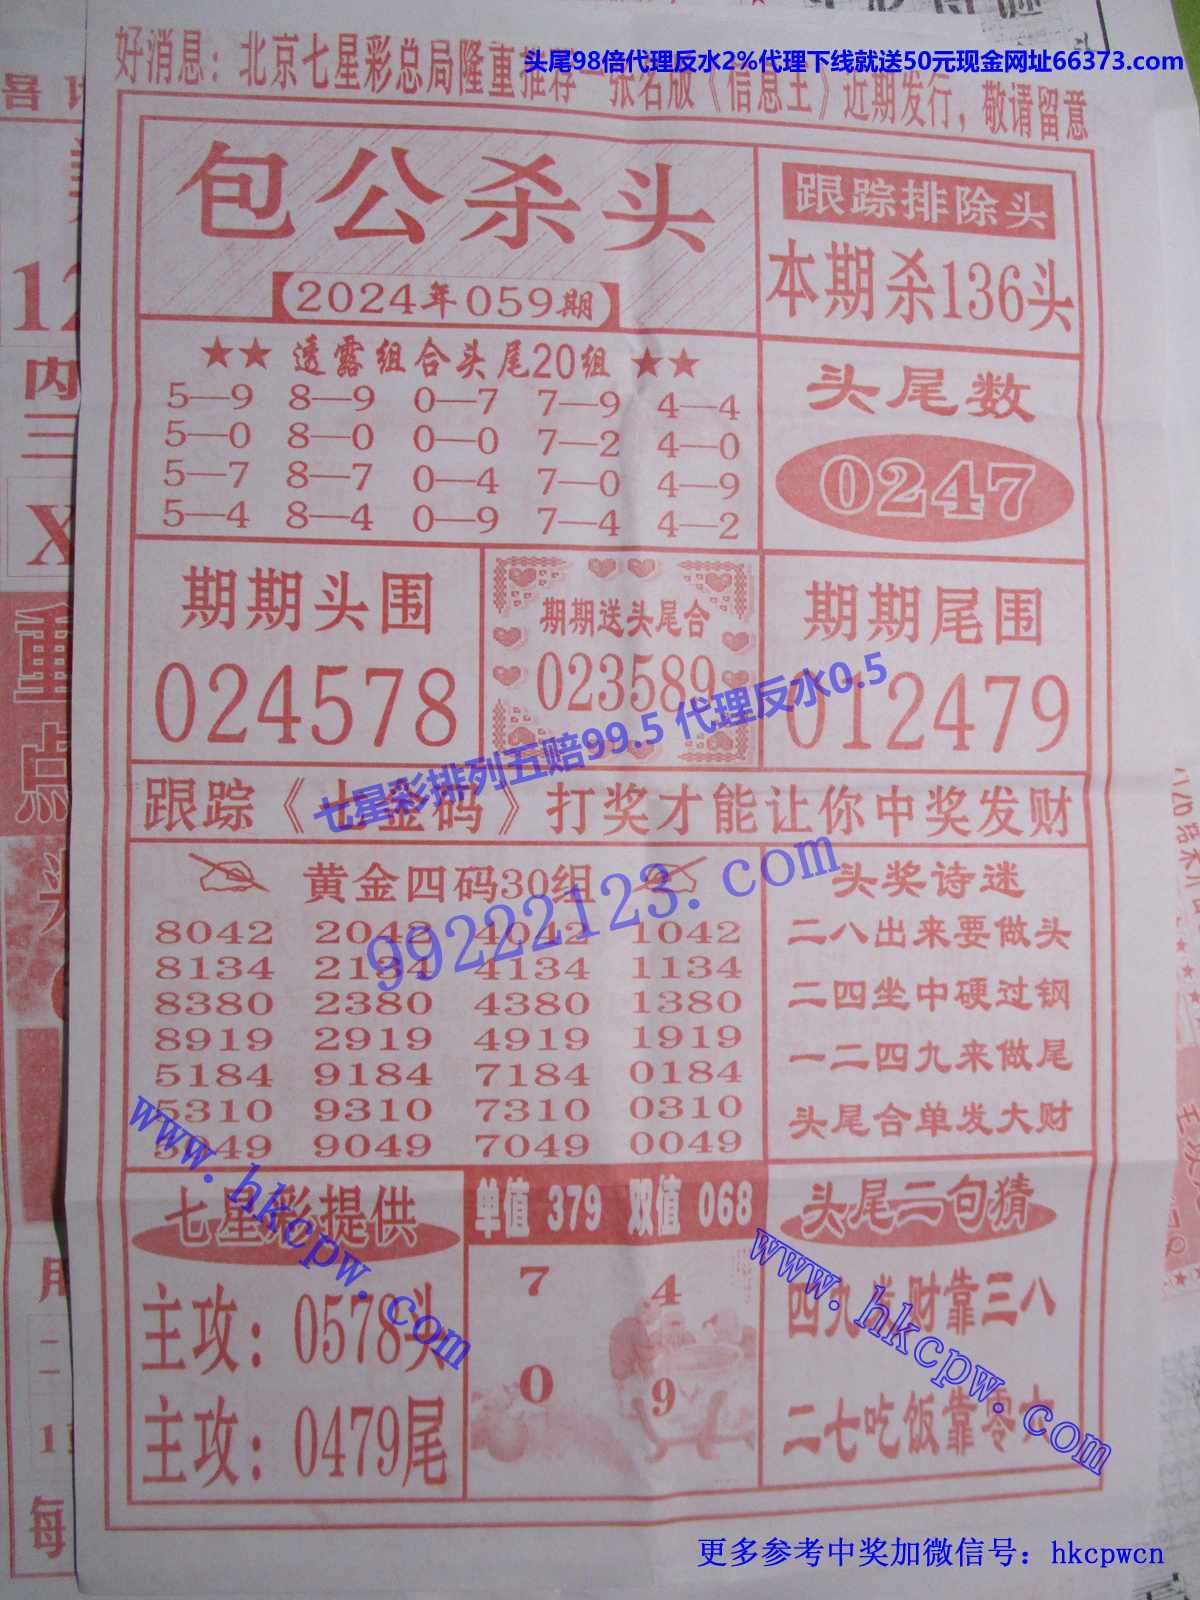 头尾98倍代理反水2%代理下线就送50元现金网址66373.com
好消息：北京七星彩总局隆重推荐一张名版《信息王》近期发行，敬请留意
包公杀头
【2024年059期】
跟踪排除头
本期杀136头
★★ 透露组合头尾20组 ★★
5—9 8—9 0—7 7—9 4—4
5—0 8—0 0—0 7—2 4—0
5—7 8—7 0—4 7—0 4—9
5—4 8—4 0—9 7—4 4—2
头尾数
0247
期期头围
024578
期期送头尾合
023589
期期尾围
012479
七星彩排列五赔99.5 代理反水0.5
跟踪《七金码》打奖才能让你中奖发财
99222123.com
黄金四码30组
8042 2042 4042 1042
8134 2134 4134 1134
8380 2380 4380 1380
8919 2919 4919 1919
5184 9184 7184 0184
5310 9310 7310 0310
5049 9049 7049 0049
头奖诗迷
二八出来要做头
二四坐中硬过钢
一二四九来做尾
头尾合单发大财
www.hkcpw.com
七星彩提供
主攻：0578头
主攻：0479尾
单值 379 双值 068
7 4
0 9
头尾二句猜
四九发财靠三八
二七吃饭靠零六
www.hkcpw.com
更多参考中奖加微信号：hkcpwcn
重
点
内
三
X
每